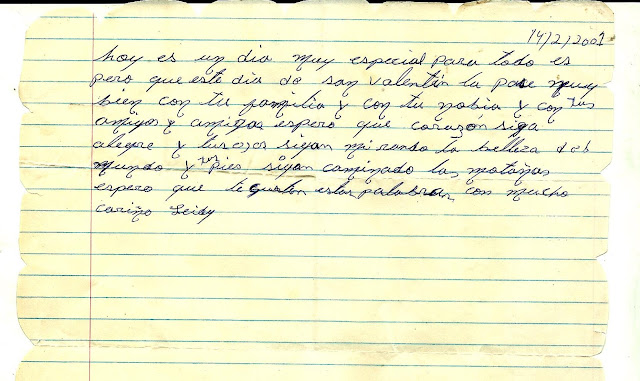 14/2/2001
hoy es un dia muy especial para todo es
pero que este dia de san valentin la pase muy
bien con tu familia y con tu nobia y con tus
amigos y amigas espero que corazón siga
alegre y tus ojos sigan mirando la belleza del
mundo y tus pies sigan caminado las motañas
espero que te gusten estas palabras con mucho
cariño Leidy